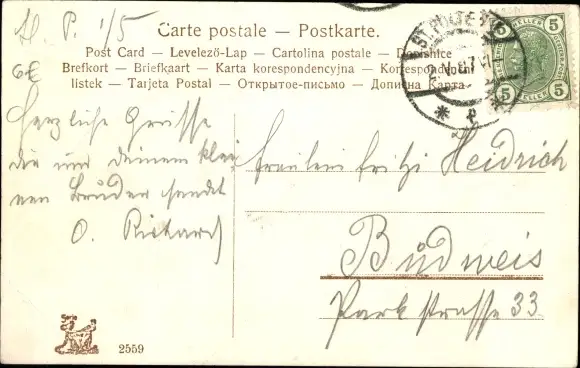 St. P. 1/5
6€
Carte postale — Postkarte.
Post Card — Levelező-Lap — Cartolina postale — Dopisnice
Brefkort — Briefkaart — Karta korespondencyjna — Korespondenční
lístek — Tarjeta Postal — Открытое-письмо — Дописна Карта
ST. PÖLTEN
5 HELLER 5
5 HELLER 5
Herzliche Grüsse
dir und deinem klei-
nen Bruder sendet
O. Richard
Fräulein Fritzi Heidrich
Budweis
Parkstrasse 33
2559